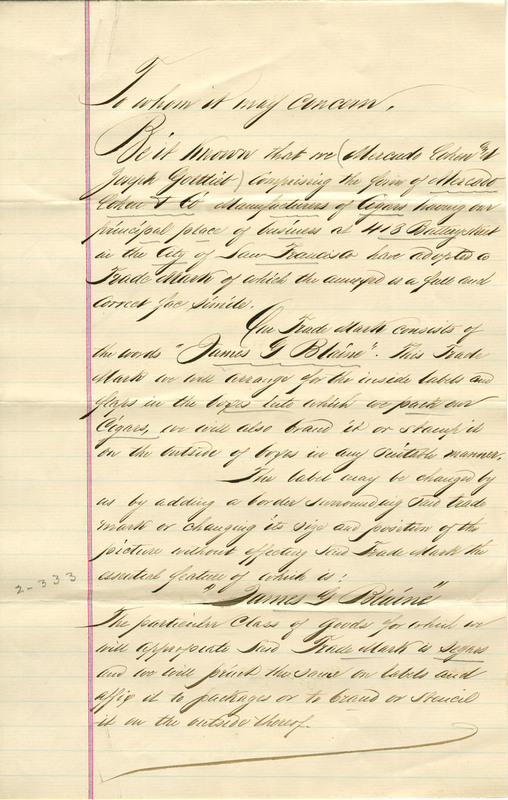 To whom it may concern,
Be it Known that we (Mercado Cohen &
Joseph Gottlieb) Comprising the firm of Mercado
Cohen & Co Manufacturers of Cigars having our
principal place of business at 413 Battery Street
in the City of San Francisco have adopted a
Trade Mark of which the annexed is a full and
Correct fac simile.
Our Trade Mark consists of
the words "James G Blaine". This Trade
Mark we will arrange for the inside labels and
flaps in the boxes into which we pack our
Cigars, we will also brand it or stamp it
on the outside of boxes in any suitable manner.
The label may be changed by
us by adding a border surrounding said trade
mark or changing its size and position of the
picture without effecting said Trade Mark the
essential feature of which is:
"James G Blaine"
2-333
The particular Class of Goods for which we
will appropriate said Trade Mark is Segars
and we will print the same on labels and
affix it to packages or to brand or stencil
it on the outside thereof.